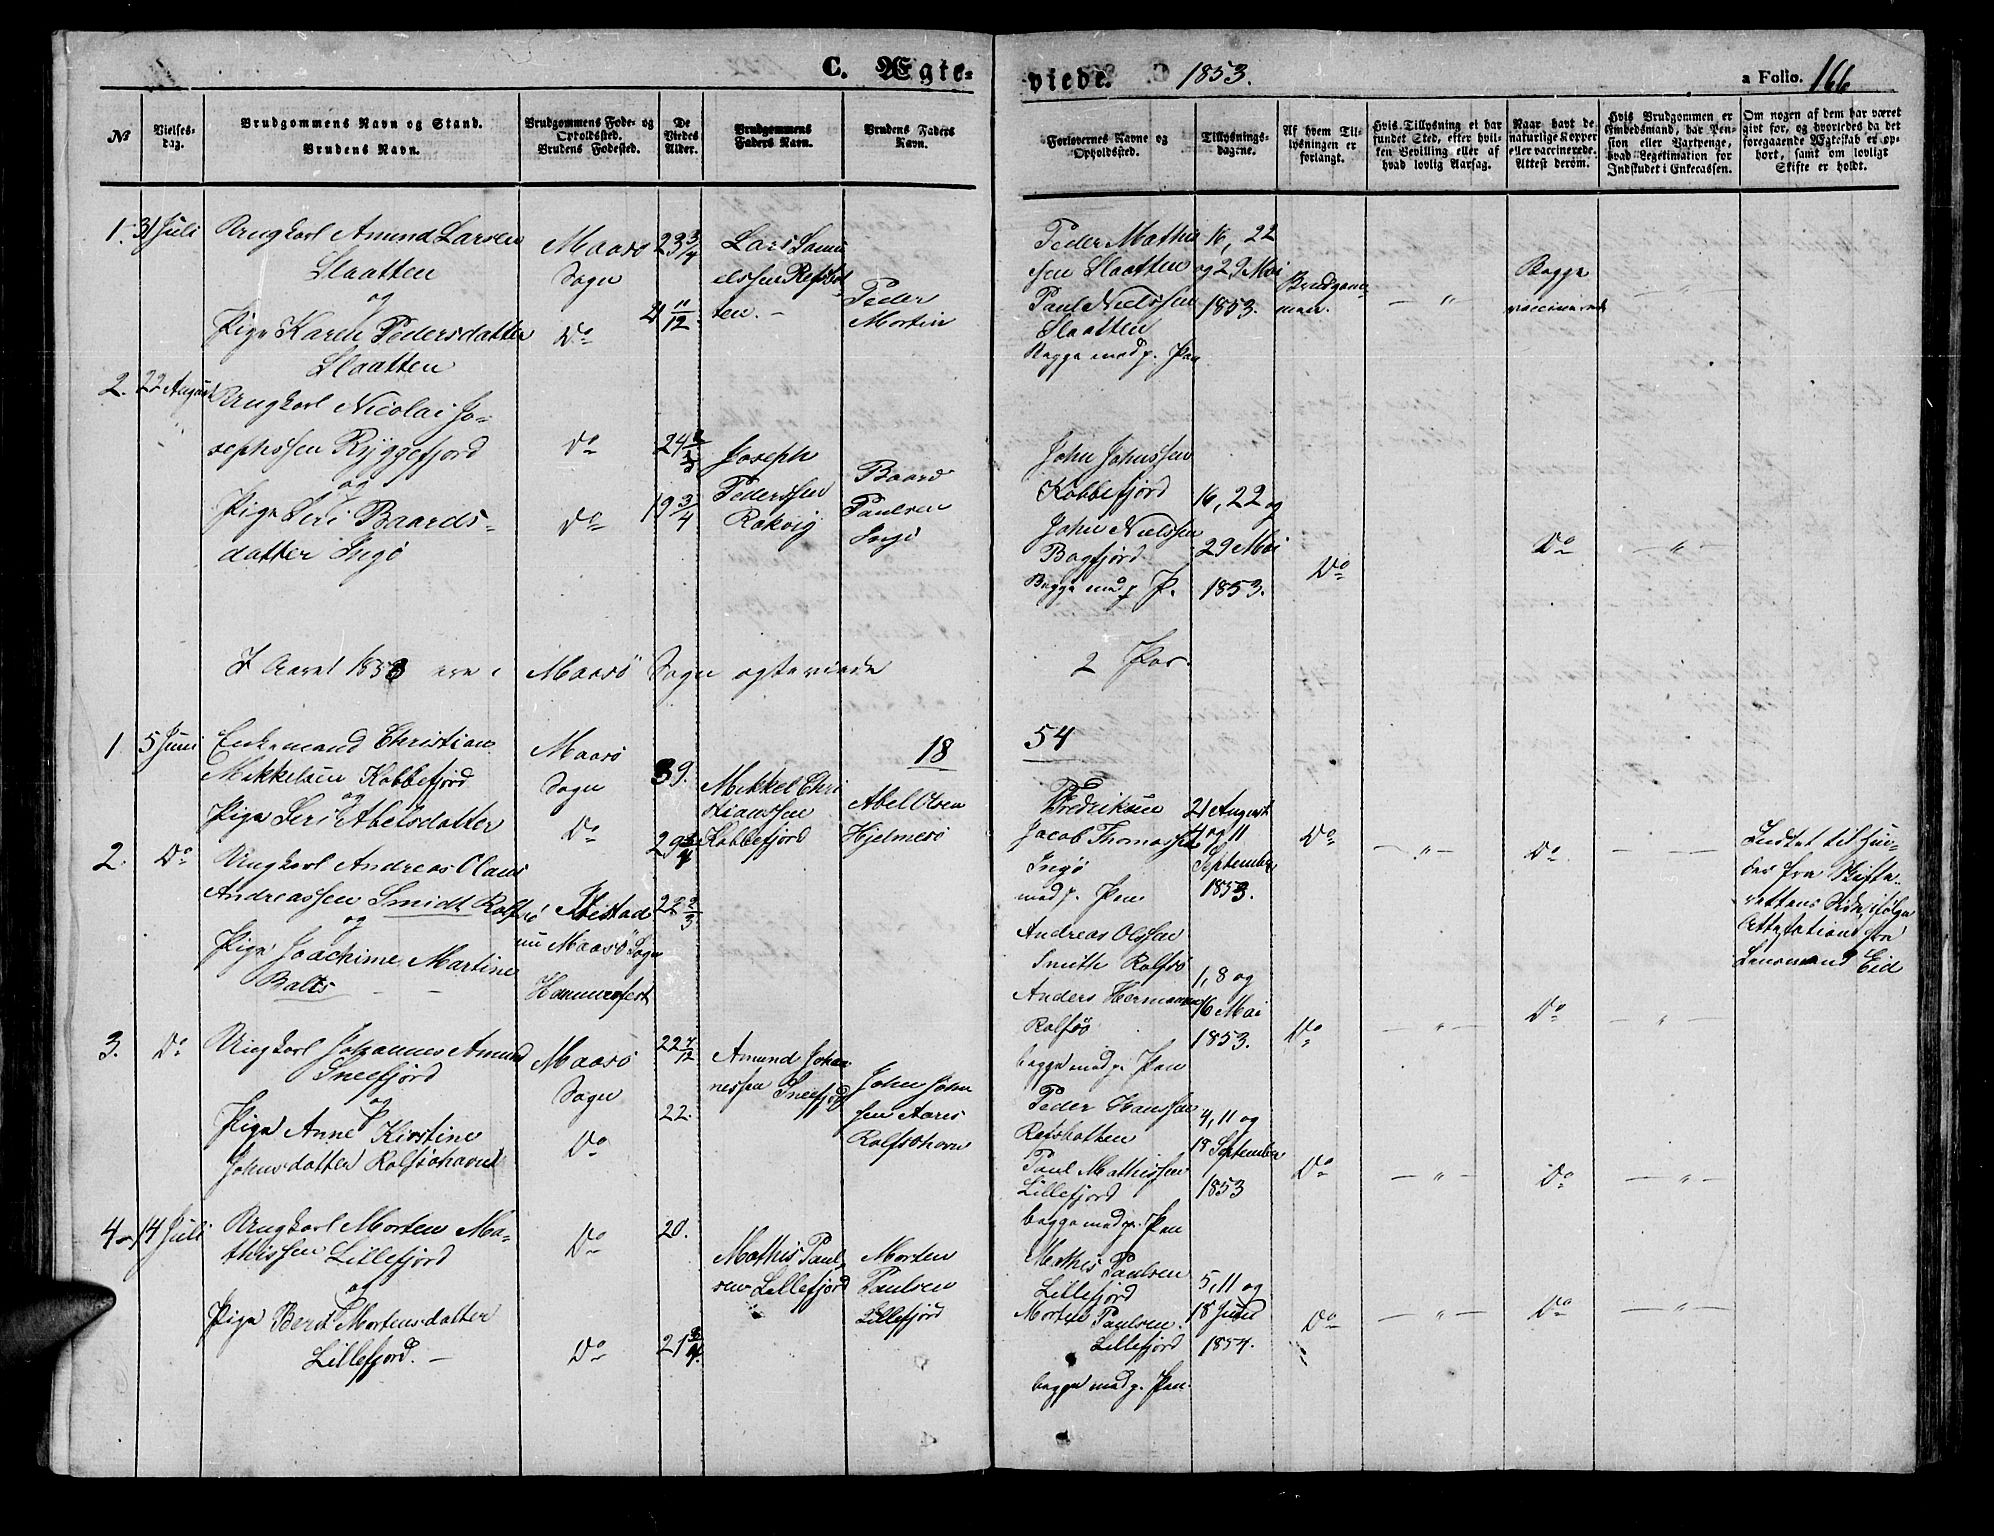 C. Ægte-
viede. 1853.
a Folio. 166
No
Vielses-
dag.
Brudgommens Navn og Stand.
Brudens Navn.
Brudgommens Føde- og
Opholdssted.
Brudens Fødested.
De
Viedes
Alder.
Brudgommens
Faders Navn.
Brudens Faders
Navn.
Forlovernes Navne og
Opholdssted.
Tillysnings-
dagene.
Af hvem Til-
lysningen er
forlangt.
Hvis Tillysning ei har
fundet Sted, efter hvil-
ken Bevilling eller af
hvad lovlig Aarsag.
Naar havt de
naturlige Kopper
eller vaccinerede.
Attest derom.
Hvis Brudgommen er
Embedsmand, har Pen-
sion eller Vartpenge,
hvad Legitimation for
Indskudet i Enkecassen.
Om nogen af dem har været
gift før, og hvorledes da det
foregaaende Ægteskab er op-
hørt, samt om lovligt
Skifte er holdt.
1. 31 Juli
Ungkarl Amund Larsen
Slaatten
og
Pige Karen Pedersdatter
Slaatten
Maasø
Sogn
Do
23 3/4
21 11/12
Lars Samu
elssen Refsbot-
ten. -
Peder
Mortin
Peder Mathis
sen Slaatten
Paul Nielssen
Slaatten
Begge med p. Pen
16, 22
og 29 Mai
1853.
Brudgom-
men.
- " -
Begge
vaccinerede
- " -
2. 22 August
Ungkarl Nicolai Jo-
sephssen Ryggefjord
og
Pige Seri Baards-
datter Ingø
Do
Do
24
19 3/4
Joseph
Pederssen
Rakvig
Baard
Paulsen
Ingø
John Johnssen
Kobbefjord
John Nielssen
Bogfjord
Begge med p. P.
16, 22 og
29 Mai
1853.
Do
Do
- " -
I Aaret 1853 ere i Maasø Sogn ægteviede
2 Par.
18
54
1 5 Juni
Enkemand Christian
Mikkelsen Kobbefjord
og
Pige Seri Abelsdatter
Maasø
Sogn
Do
39.
29 3/4
Mikkel Chri
stianssen
Kobbefjord
Abel Olsen
Hjelmesø
Fredriksen
Jacob Thomassen
Ingø
med p. Pen
21 August
4 og 11
September
1853.
Do
- " -
Do
- " -
Lensmand Eid
2. Do
Ungkarl Andreas Olaus
Andreassen Smidt Rolfsø
og
Pige Joachime Martine
Balts - -
Ibestad
nu Maasø Sogn
Hammerfest
22 2/3
Andreas Olssen
Smith Rolfsø
Anders Hermansen
Rolfsø
begge med p. Pen
1, 8 og
16 Mai
1853.
Do
- " -
Do
- " -
3. Do
Ungkarl Johannes Amund
Sneefjord
og
Pige Anne Kirstine
Johnsdatter Rolfsøhavnet
Maasø
Sogn
Do
22 7/12
22.
Amund Johan
nessen Sneefjord
John John
sen Aares
Rolfsøhavn
Peder Hanssen
Refsbotten
Paul Mathissen
Lillefjord
begge med p. Pen
4, 11 og
18 September
1853
Do
- " -
Do
- " -
4 - 14 Juli
Ungkarl Morten Ma-
thissen Lillefjord
og
Pige Berit Mortensdatter
Lillefjord. -
Do
Do
20.
21 3/4.
Mathis Paul
sen Lillefjord
Morten
Paulsen
Lillefjord
Mathis Paulsen
Lillefjord
Morten Paulsen.
Lillefjord
begge med p. Pen.
5, 11 og
18 Juni
1854.
Do
- " -
Do
- " -